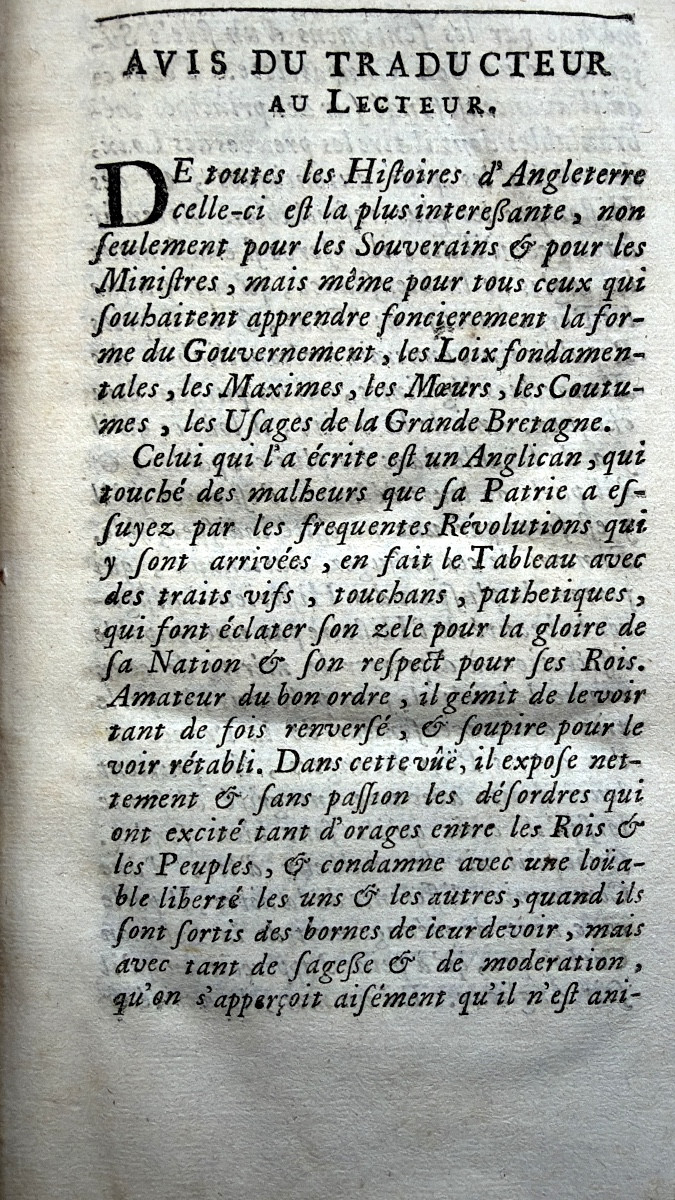 AVIS DU TRADUCTEUR
AU LECTEUR.
DE toutes les Hiſtoires d'Angleterre
celle-ci eſt la plus intereßante, non
ſeulement pour les Souverains & pour les
Miniſtres, mais même pour tous ceux qui
ſouhaitent apprendre foncierement la for-
me du Gouvernement, les Loix fondamen-
tales, les Maximes, les Mœurs, les Coutu-
mes, les Uſages de la Grande Bretagne.
Celui qui l'a écrite eſt un Anglican, qui
touché des malheurs que ſa Patrie a eſ-
ſuyez par les frequentes Révolutions qui
y ſont arrivées, en fait le Tableau avec
des traits vifs, touchans, pathetiques,
qui font éclater ſon zele pour la gloire de
ſa Nation & ſon reſpect pour ſes Rois.
Amateur du bon ordre, il gémit de le voir
tant de fois renverſé, & ſoupire pour le
voir rétabli. Dans cette vûë, il expoſe net-
tement & ſans paſſion les déſordres qui
ont excité tant d'orages entre les Rois &
les Peuples, & condamne avec une loüa-
ble liberté les uns & les autres, quand ils
ſont ſortis des bornes de leur devoir, mais
avec tant de ſageße & de moderation,
qu'on s'apperçoit aiſément qu'il n'eſt ani-